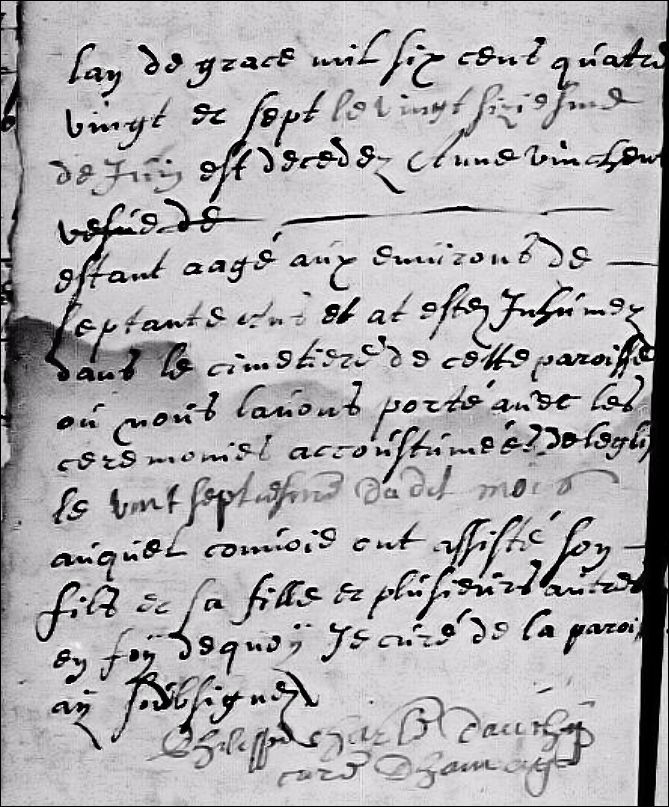 lan de grace mil six cens quatre
vingt et sept le vingt siziesme
de Juin est decedez Anne vinchen
vefue de
estant aagé aux enuirons de
septante ans et at estez Inhúmez
dans le cimetieré de cette paroisse
oú noús lauons porté auec les
ceremonies accoústúmées de leglis
le vint septiesme du dit mois
auquel conuoie ont assisté son
fils et sa fille et plúsieúrs aútres
en foÿ dequoÿ Je cúré de la parois
aÿ soúbsignez
Philippe charle
curé